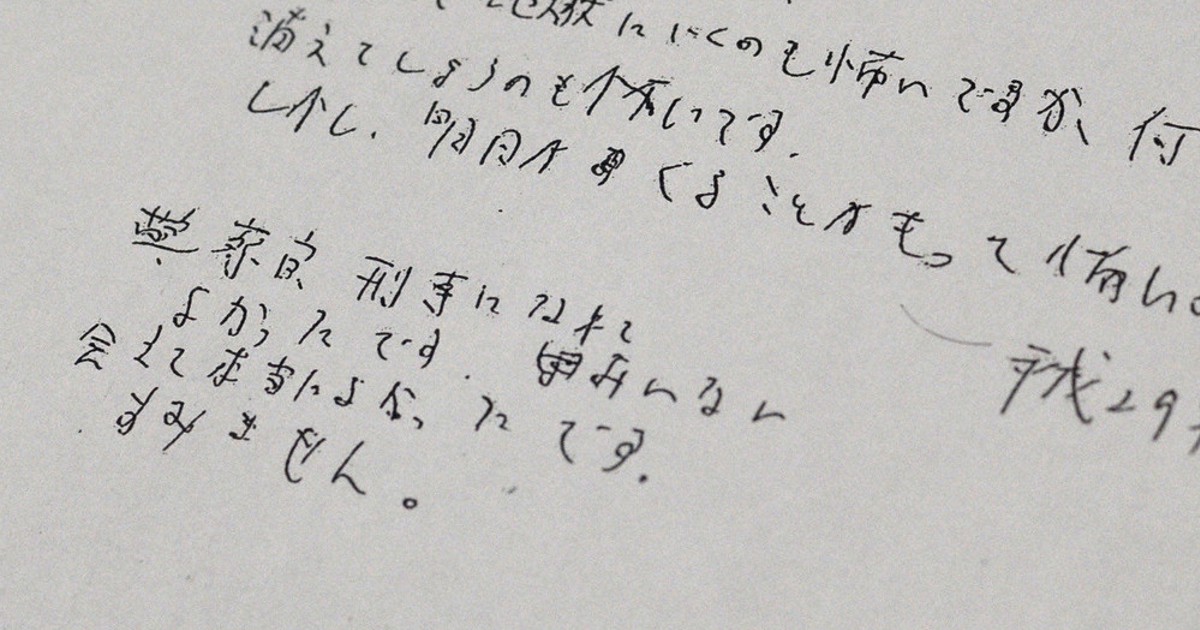 地獄にいくのも怖いですが、何
消えてしまうのも怖いです。
しかし、明日がまたくることがもっと怖い。
警察官、刑事になれて
よかったです。
会えて本当によかったです。
すみません。
平成29